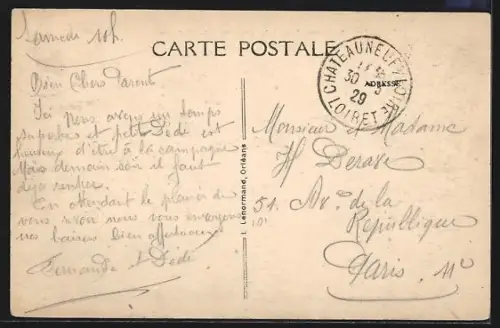 Samedi 11h.
CARTE POSTALE
Bien Chers Parents
Ici nous avons un temps
superbe et petit Dédé est
heureux d'être à la campagne
Mais demain soir il faut
déjà rentrer.
En attendant le plaisir de
vous voir nous vous envoyons
nos baisers bien affectueux
Fernande et Dédé
L. Lenormand, Orléans
CHATEAUNEUF S LOIRE
30 - 3
29
LOIRET
ADRESSE
Monsieur et Madame
H Derave
51. Av. de la
République
Paris. 11e